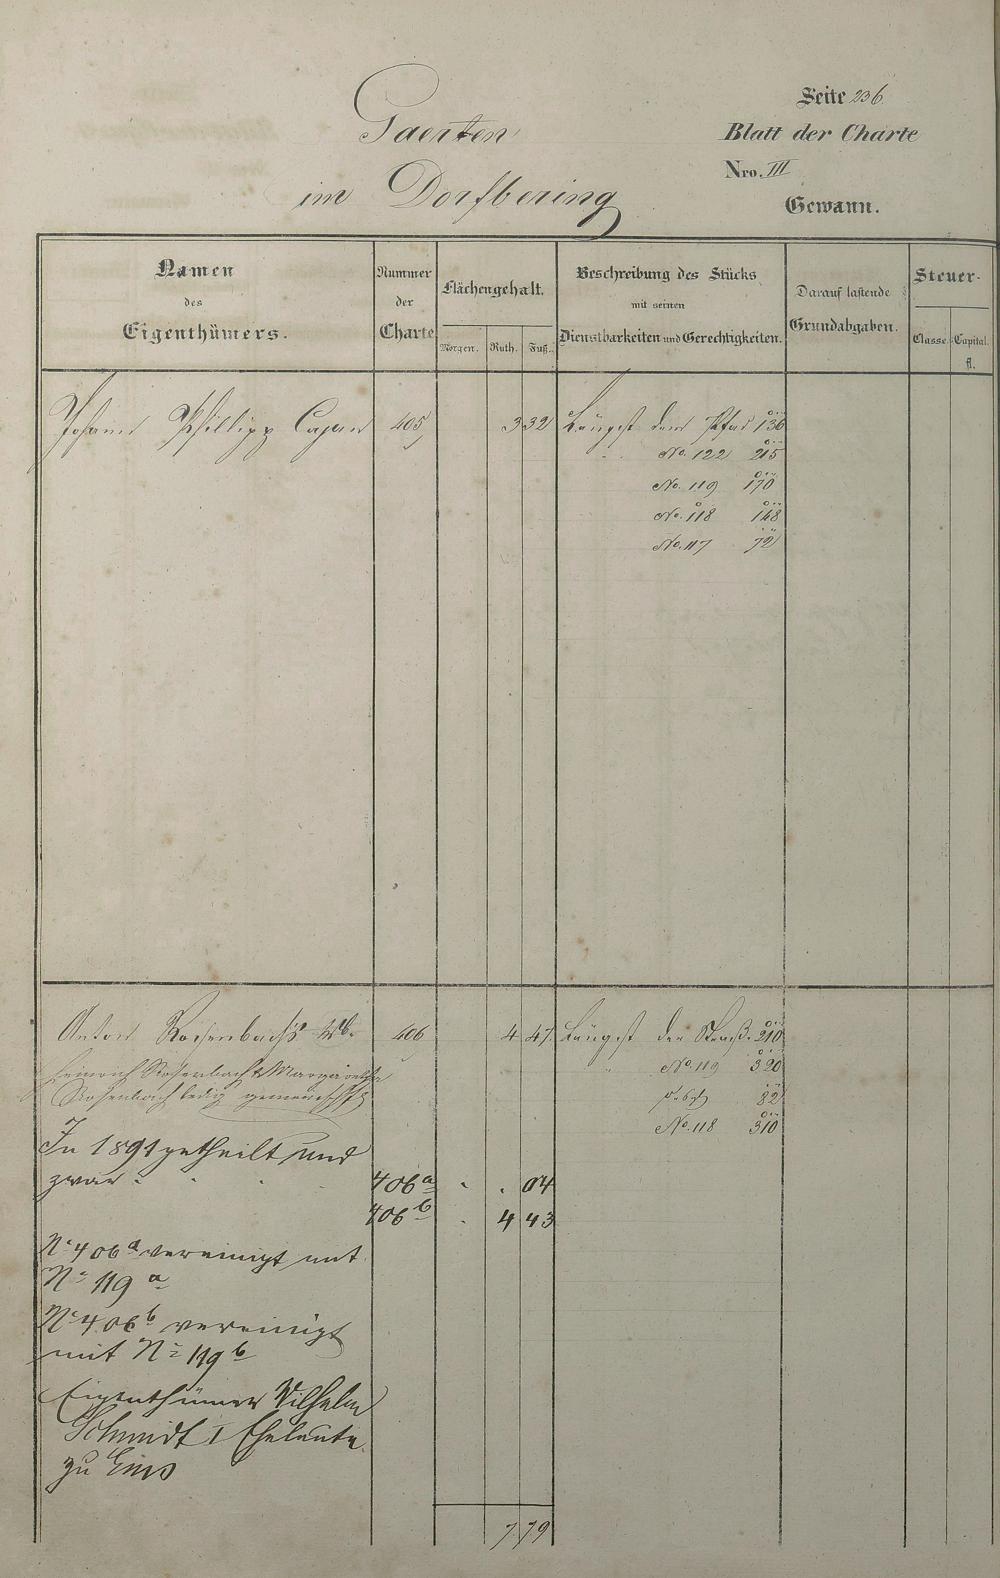 Seite 236
Gaerten
Blatt der Charte
Nro. III
im Dorfbering
Gewann.
Namen
des
Eigenthümers.
Nummer
der
Charte
Flächengehalt.
Morgen. Ruth. Fuß.
Beschreibung des Stücks
mit seinen
Dienstbarkeiten und Gerechtigkeiten.
Darauf lastende
Grundabgaben.
Steuer-
Classe Capital.
fl.
Johann Phillipp 405 3 32 Längst dem Pfad 136
No. 122 215
No. 119 170
No. 118 148
No. 117 72
Anton Rosenbach's 406 4 47 Längst der Straße 210
Heinrich Rosenbach & Margaretha No. 119 320
Rosenbach ledig gemeinschftl 82
No. 118 310
In 1891 getheilt und
zwar 406a 04
406b 4 43
No 406a vereinigt mit
No 119a
No 406b vereinigt
mit No 119b
Eigenthümer Wilhelm
Schmidt I Eheleute
zu Ems
7 79